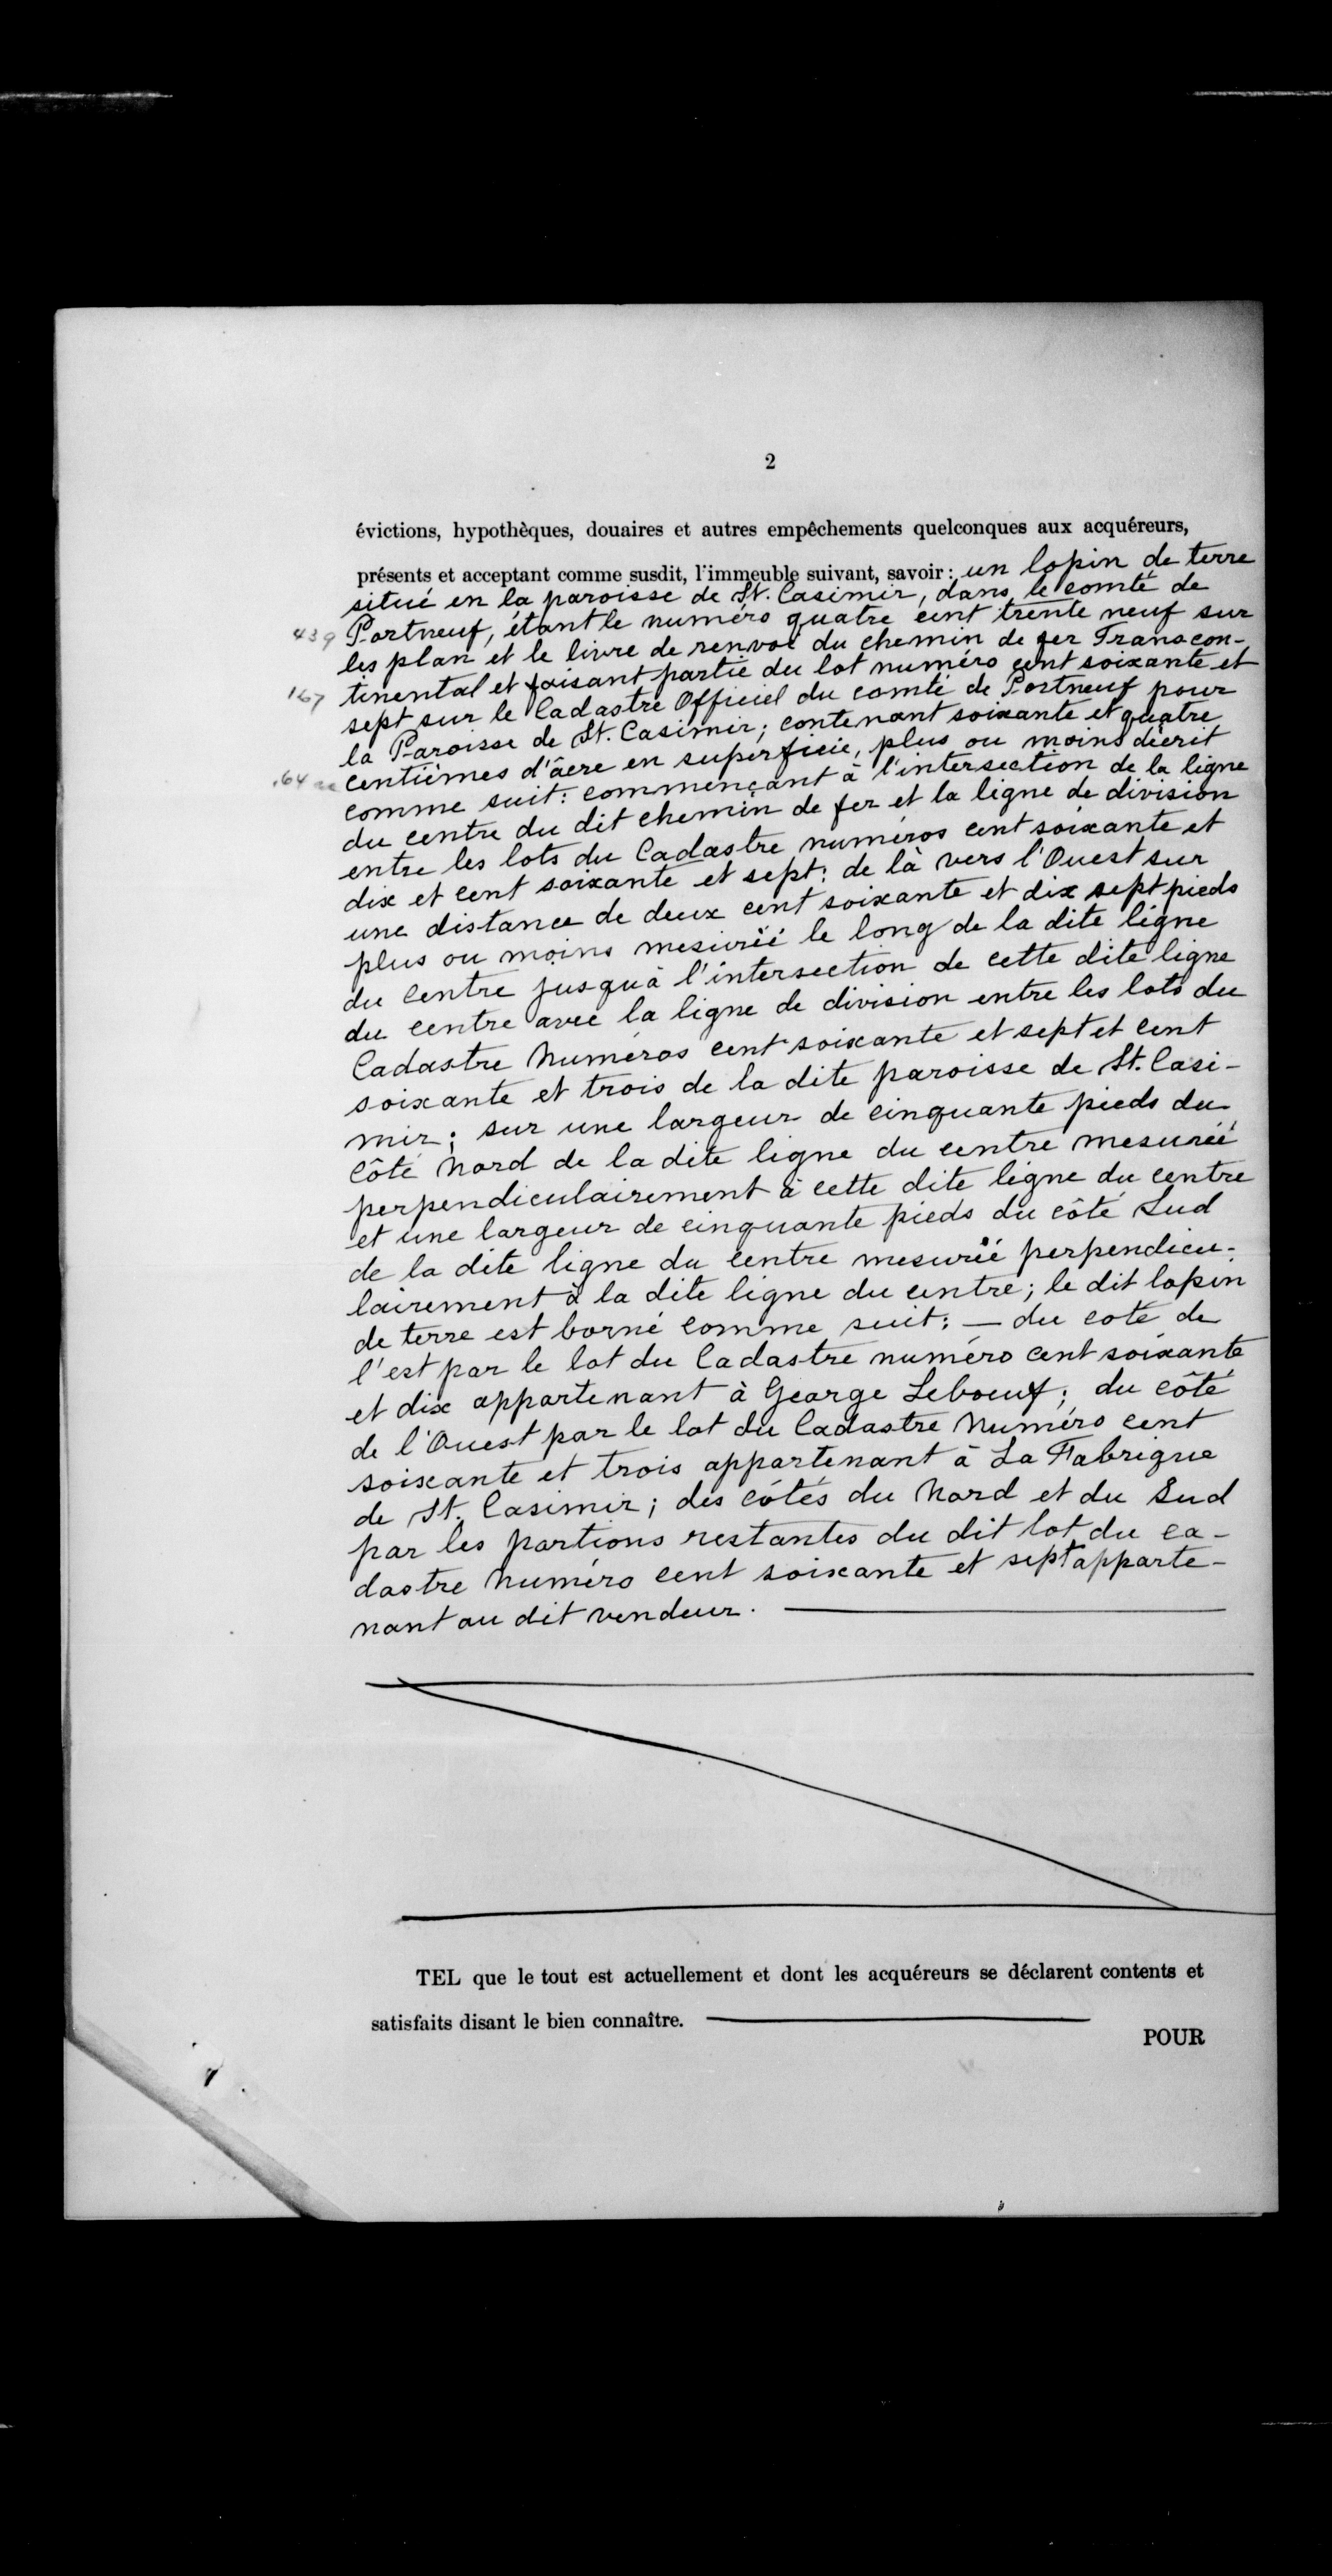 2
évictions, hypothèques, douaires et autres empêchements quelconques aux acquéreurs,
présents et acceptant comme susdit, l'immeuble suivant, savoir : un lopin de terre
situé en la paroisse de St. Casimir, dans le comté de
439 Portneuf, étant le numéro quatre cent trente neuf sur
les plan et le livre de renvoi du chemin de fer Transcon-
167 tinental et faisant partie du lot numéro cent soixante et
sept sur le Cadastre Officiel du comté de Portneuf pour
la Paroisse de St. Casimir; contenant soixante et quatre
.64 centièmes d'âcre en superficie, plus ou moins décrit
comme suit: commençant à l'intersection de la ligne
du centre du dit chemin de fer et la ligne de division
entre les lots du Cadastre numéros cent soixante et
dix et cent soixante et sept: de là vers l'Ouest sur
une distance de deux cent soixante et dix sept pieds
plus ou moins mesurée le long de la dite ligne
du centre jusqu'à l'intersection de cette dite ligne
du centre avec la ligne de division entre les lots du
Cadastre Numéros cent soixante et sept et cent
soixante et trois de la dite paroisse de St. Casi-
mir; sur une largeur de cinquante pieds du
côté Nord de la dite ligne du centre mesurée
perpendiculairement à cette dite ligne du centre
et une largeur de cinquante pieds du côté Sud
de la dite ligne du centre mesurée perpendicu-
lairement à la dite ligne du centre; le dit lopin
de terre est borné comme suit: — du coté de
l'est par le lot du Cadastre numéro cent soixante
et dix appartenant à George Leboeuf; du côté
de l'Ouest par le lot du Cadastre Numéro cent
soixante et trois appartenant à La Fabrique
de St. Casimir; des côtés du Nord et du Sud
par les portions restantes du dit lot du ca-
dastre Numéro cent soixante et sept apparte-
nant au dit vendeur.
TEL que le tout est actuellement et dont les acquéreurs se déclarent contents et
satisfaits disant le bien connaître.
POUR